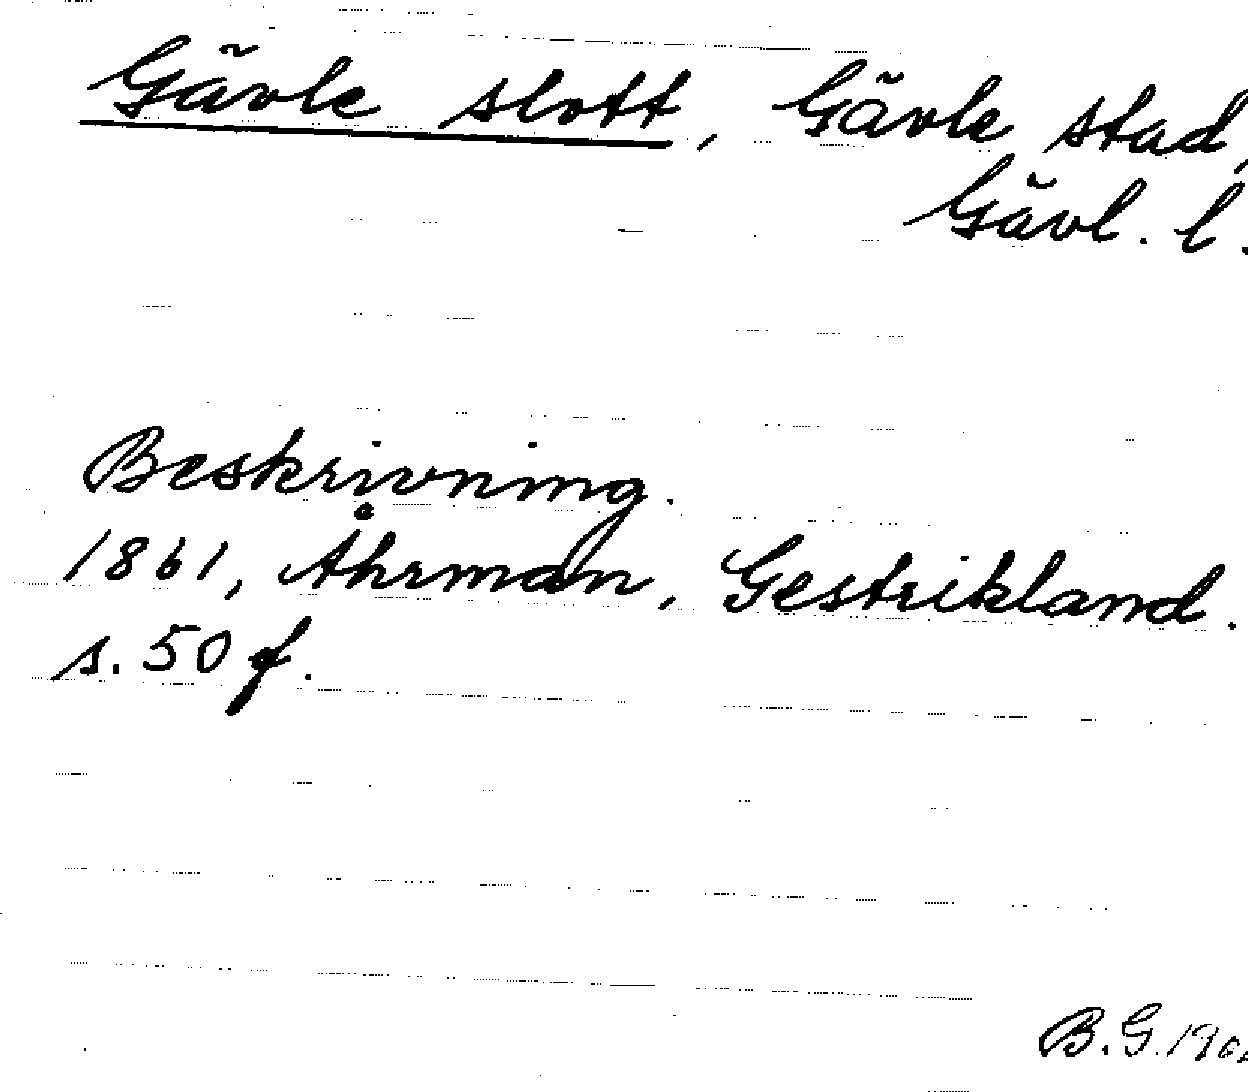 Gävle slott, Gävle stad,
Gävl. l.
Beskrivning.
1861, Åhrman, Gestrikland.
s. 50 f.
B.G.